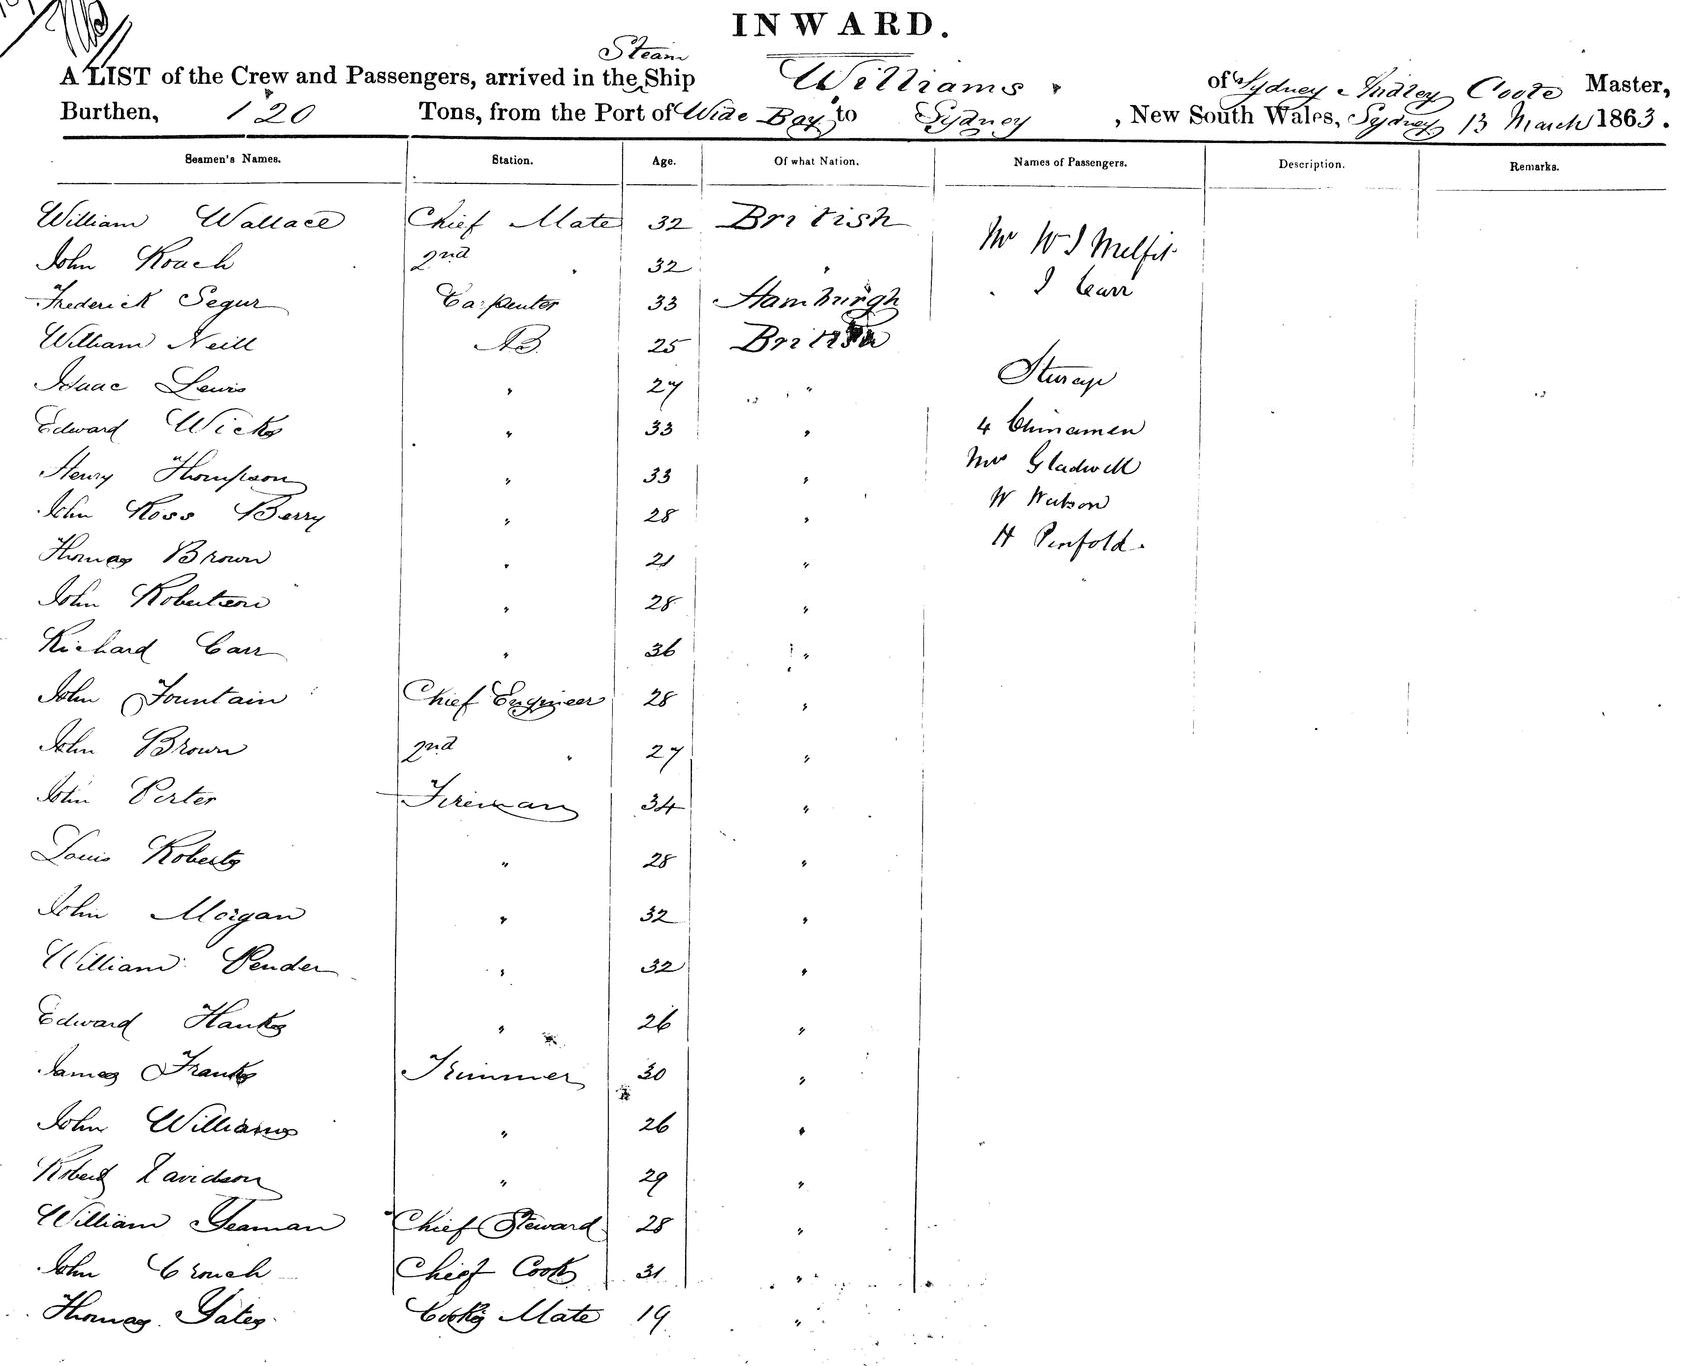 INWARD.
Steam
A LIST of the Crew and Passengers, arrived in the Ship Williams of Sydney Audley Coote Master,
Burthen, 120 Tons, from the Port of Wide Bay to Sydney, New South Wales, Sydney 13 March 1863.
Seamen's Names. Station. Age. Of what Nation. Names of Passengers. Description. Remarks.
William Wallace Chief Mate 32 British Mr W J
John Roach 2nd " 32 " J Carr
Frederick Segur Carpenter 33 Hamburgh
William Neill AB. 25 British
Isaac Lewis " 27 " Sturage
Edward Wicks " 33 " 4 Chinamen
Henry Thompson " 33 " Mrs Gladwell
John Ross Berry " 28 " W Watson
Thomas Brown " 21 " H Penfold.
John Robertson " 28 "
Richard Carr " 36 "
John Fountain Chief Engineer 28 "
John Brown 2nd " 27 "
John Porter Fireman 34 "
Louis Roberts " 28 "
John Morgan " 32 "
William Pender " 32 "
Edward Hanks " 26 "
James Franks Trimmer 30 "
John Williams " 26 "
Robert Davidson " 29 "
William Yeaman Chief Steward 28 "
John Crouch Chief Cook 31 "
Thomas Yates Cooks Mate 19 "